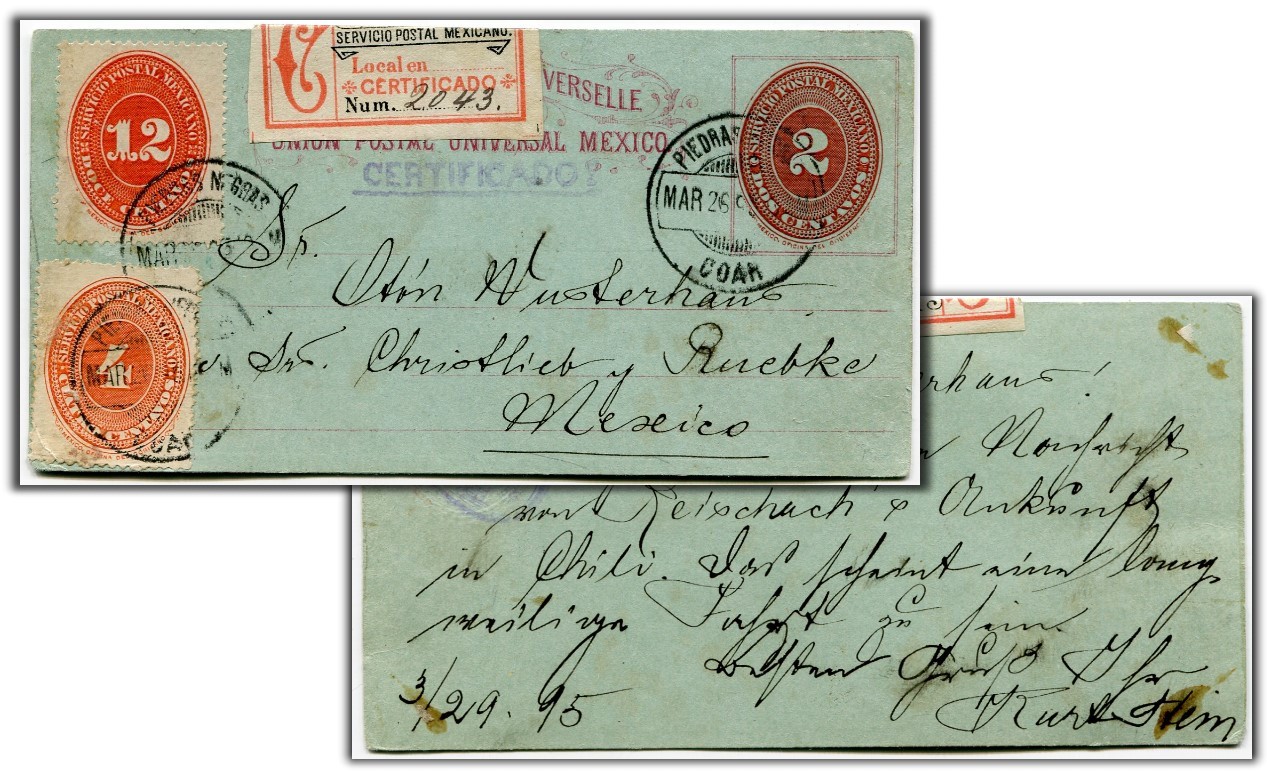 SERVICIO POSTAL MEXICANO.
Local en
CERTIFICADO
Num. 2043.
VERSELLE
UNION POSTAL UNIVERSAL MEXICO
CERTIFICADO
SERVICIO POSTAL MEXICANO
12
DOCE CENTAVOS
SERVICIO POSTAL MEXICANO
2
DOS CENTAVOS
PIEDRAS
MAR 26
COAH
NEGRAS
MAR
SERVICIO POSTAL MEXICANO
CENTAVOS
MAR
Sr.
Otón Wusterhaus
Srs. Christlieb y Ruebke
Mexico
erhaus!
Nachricht
von Reischach's Ankunft
in Chili. Das scheint eine lang
weilige Fahrt zu sein.
Besten Gruß Ihr
3/29. 95
Kurt Stein